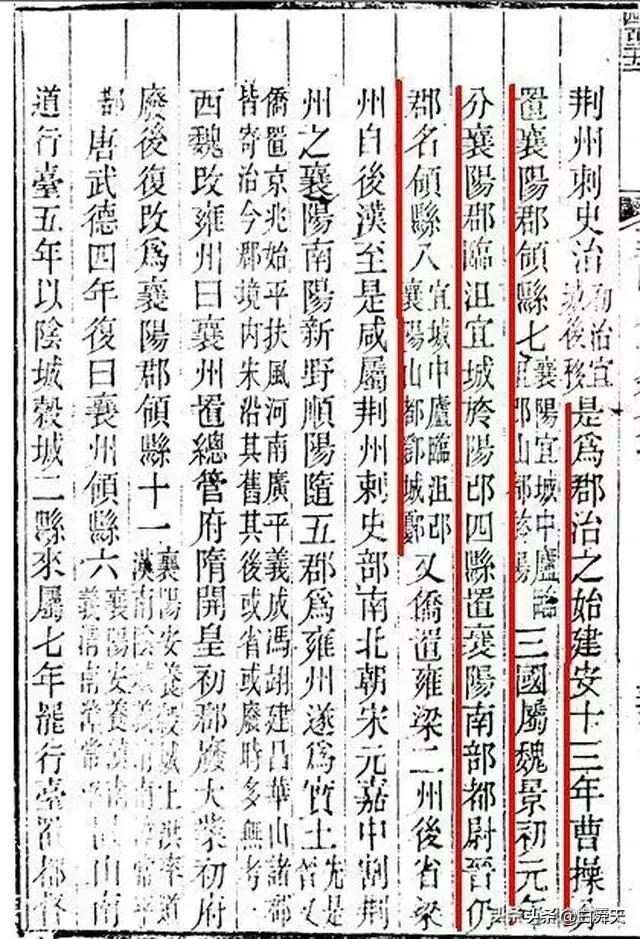 荆州刺史治初治宜城後移是爲郡治之始建安十三年曹操
置襄陽郡領縣七襄陽宜城中廬臨山都陽三國屬魏景初元年
分襄陽郡臨沮宜城於陽邔四縣置襄陽南部都尉晉仍
郡名領縣八宜城中廬臨沮邔襄陽山都鄧城鄾又僑置雍梁二州後省梁
州自後漢至是咸屬荆州刺史部南北朝宋元嘉中割荆
州之襄陽南陽新野順陽隨五郡爲雍州遂爲實土先是晉又
僑置京兆始平扶風河南廣平義成馮翊建昌華山諸郡
皆寄治今郡境内宋沿其舊其後或省或廢時多無考
西魏改雍州曰襄州置總管府隋開皇初郡廢大業初府
廢後復改爲襄陽郡領縣十一襄陽安養穀城上洪率道漢南陰城義清南漳常平
都唐武德四年復曰襄州領縣六襄陽安養漢南義清南漳常平山南
道行臺五年以陰城穀城二縣來屬七年罷行臺置都督
头条@白舜天